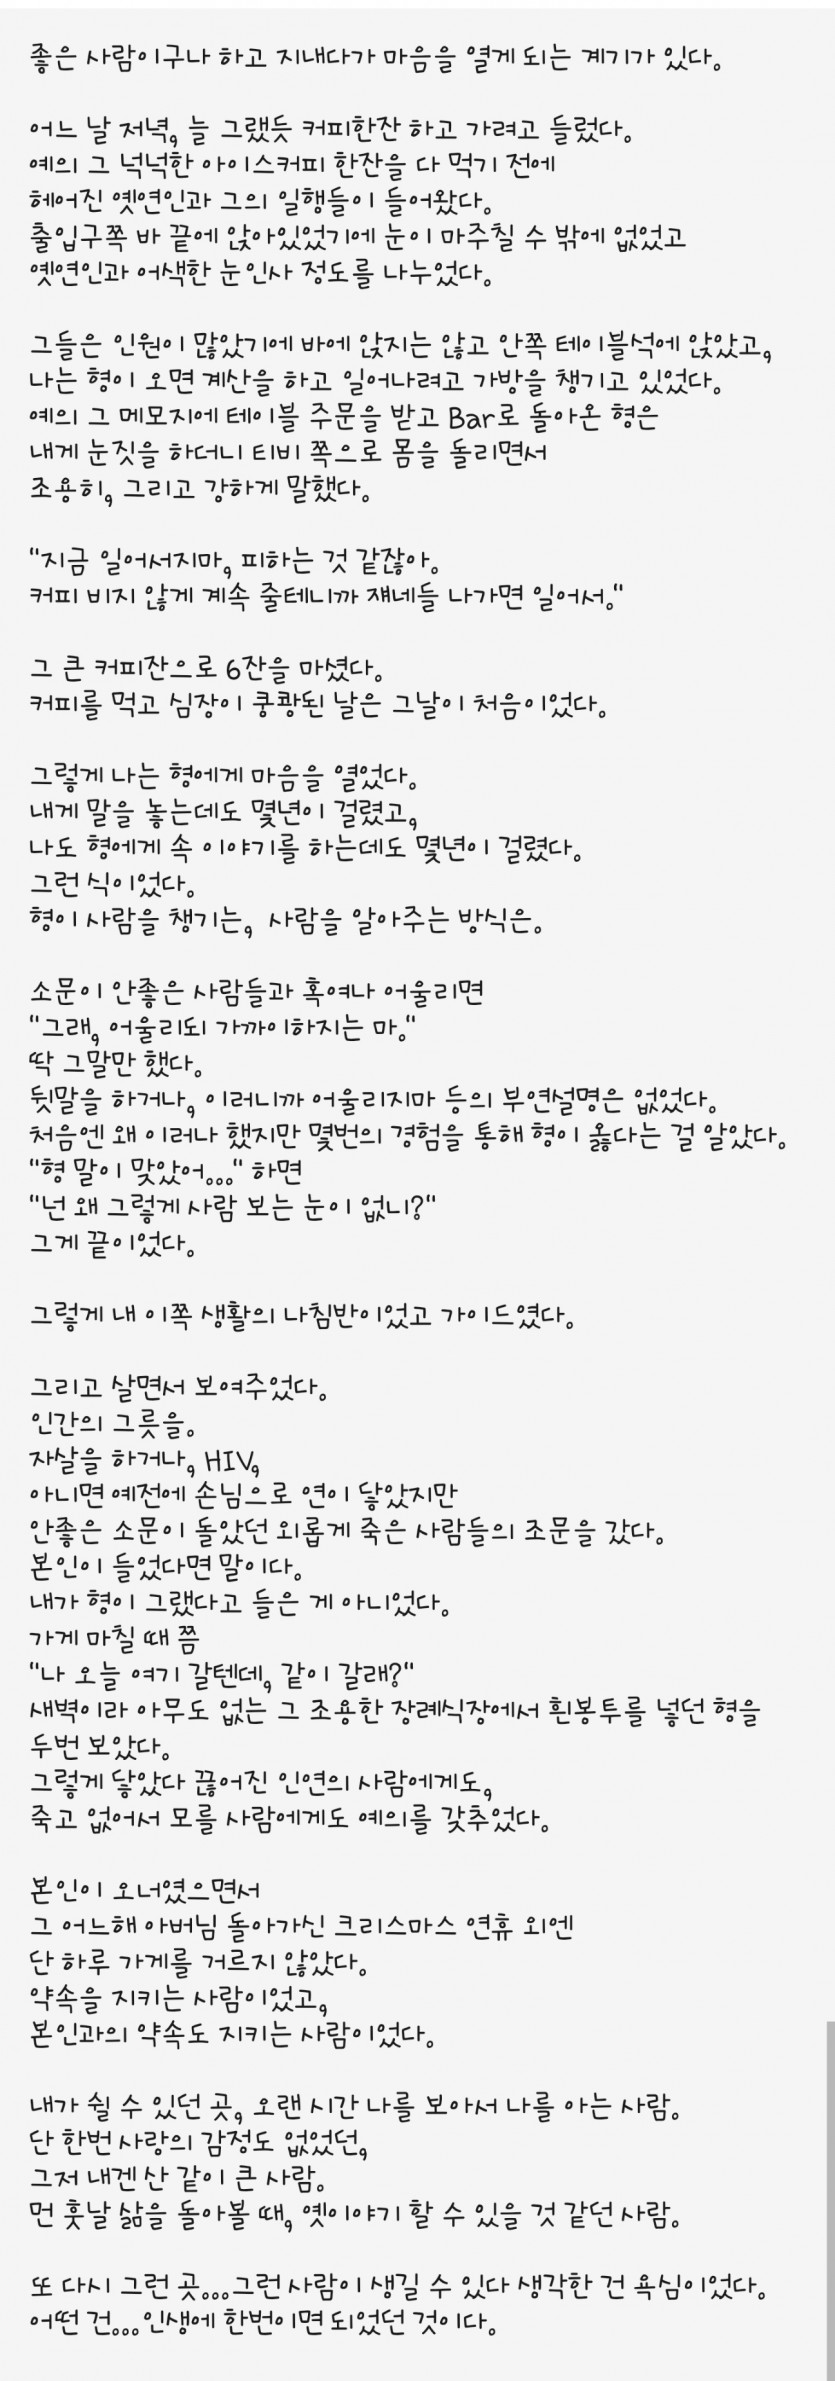 좋은 사람이구나 하고 지내다가 마음을 열게 되는 계기가 있다.
어느 날 저녁, 늘 그랬듯 커피한잔 하고 가려고 들렀다.
예의 그 넉넉한 아이스커피 한잔을 다 먹기 전에
헤어진 옛연인과 그의 일행들이 들어왔다.
출입구쪽 바 끝에 앉아있었기에 눈이 마주칠 수 밖에 없었고
옛연인과 어색한 눈인사 정도를 나누었다.
그들은 인원이 많았기에 바에 앉지는 않고 안쪽 테이블석에 앉았고,
나는 형이 오면 계산을 하고 일어나려고 가방을 챙기고 있었다.
예의 그 메모지에 테이블 주문을 받고 Bar로 돌아온 형은
내게 눈짓을 하더니 티비 쪽으로 몸을 돌리면서
조용히, 그리고 강하게 말했다.
"지금 일어서지마, 피하는 것 같잖아.
커피 비지 않게 계속 줄테니까 쟤네들 나가면 일어서."
그 큰 커피잔으로 6잔을 마셨다.
커피를 먹고 심장이 쿵쾅된 날은 그날이 처음이었다.
그렇게 나는 형에게 마음을 열었다.
내게 말을 놓는데도 몇년이 걸렸고,
나도 형에게 속 이야기를 하는데도 몇년이 걸렸다.
그런 식이었다.
형이 사람을 챙기는, 사람을 알아주는 방식은.
소문이 안좋은 사람들과 혹여나 어울리면
"그래, 어울리되 가까이하지는 마."
딱 그말만 했다.
뒷말을 하거나, 이러니까 어울리지마 등의 부연설명은 없었다.
처음엔 왜 이러나 했지만 몇번의 경험을 통해 형이 옳다는 걸 알았다.
"형 말이 맞았어..." 하면
"넌 왜 그렇게 사람 보는 눈이 없니?"
그게 끝이었다.
그렇게 내 이쪽 생활의 나침반이었고 가이드였다.
그리고 살면서 보여주었다.
인간의 그릇을.
자살을 하거나, HIV,
아니면 예전에 손님으로 연이 닿았지만
안좋은 소문이 돌았던 외롭게 죽은 사람들의 조문을 갔다.
본인이 들었다면 말이다.
내가 형이 그랬다고 들은 게 아니었다.
가게 마칠 때 쯤
"나 오늘 여기 갈텐데, 같이 갈래?"
새벽이라 아무도 없는 그 조용한 장례식장에서 흰봉투를 넣던 형을
두번 보았다.
그렇게 닿았다 끊어진 인연의 사람에게도,
죽고 없어서 모를 사람에게도 예의를 갖추었다.
본인이 오너였으면서
그 어느해 아버님 돌아가신 크리스마스 연휴 외엔
단 하루 가게를 거르지 않았다.
약속을 지키는 사람이었고,
본인과의 약속도 지키는 사람이었다.
내가 쉴 수 있던 곳, 오랜 시간 나를 보아서 나를 아는 사람.
단 한번 사랑의 감정도 없었던,
그저 내겐 산 같이 큰 사람.
먼 훗날 삶을 돌아볼 때, 옛이야기 할 수 있을 것 같던 사람.
또 다시 그런 곳...그런 사람이 생길 수 있다 생각한 건 욕심이었다.
어떤 건...인생에 한번이면 되었던 것이다.